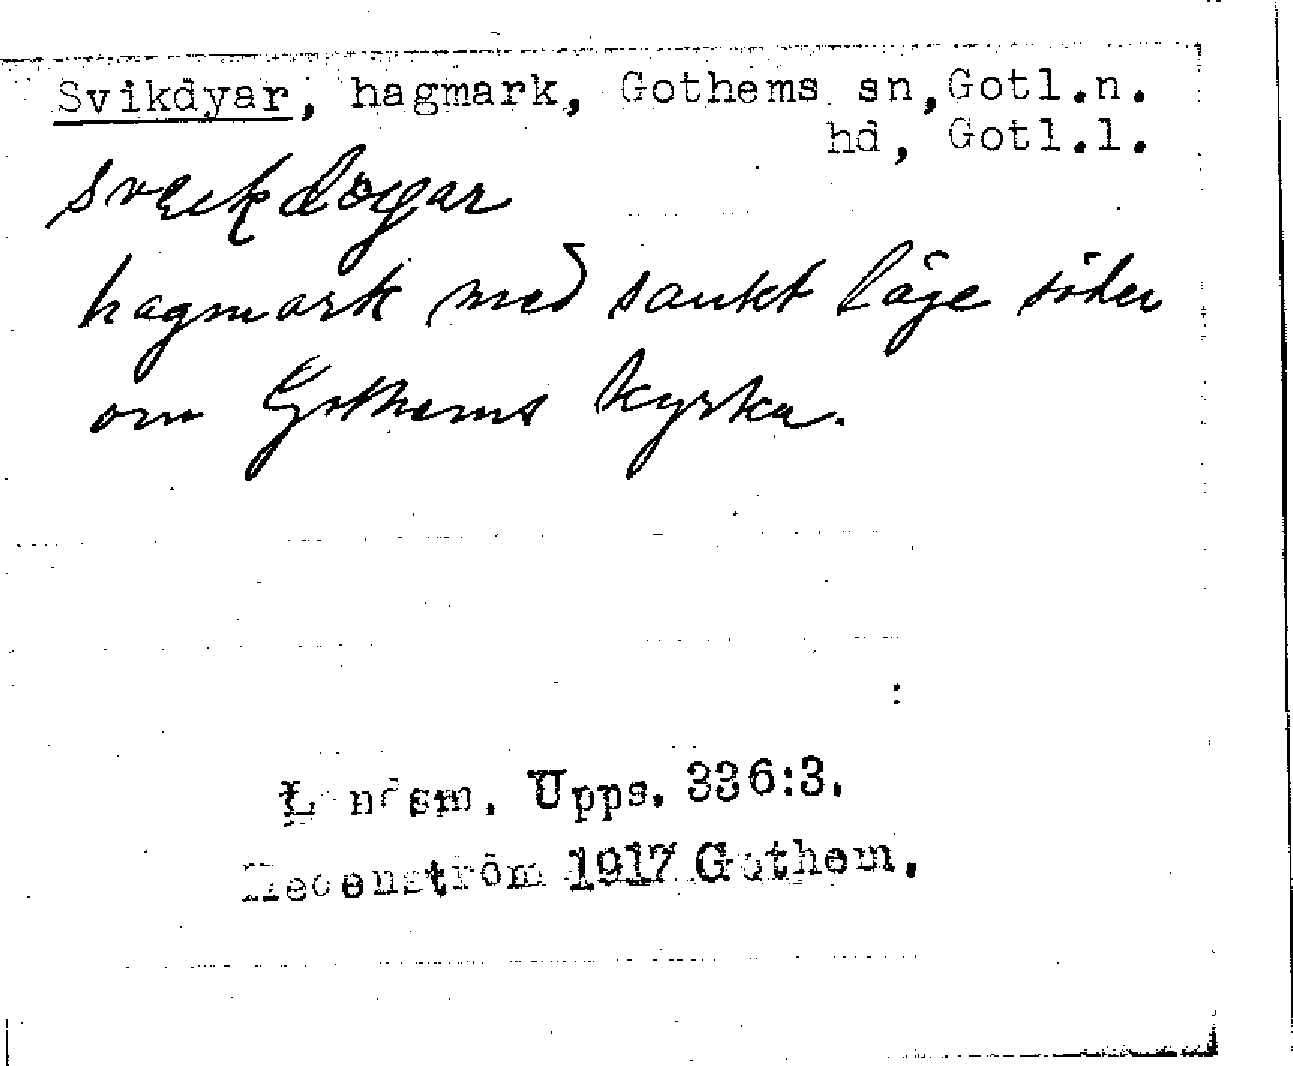 Svikdyar, hagmark, Gothems sn, Gotl.n.
hd, Gotl.l.
hagmark med sankt läge söder
om Gothems kyrka.
Landsm. Upps. 336:3.
Hedenström 1917 Gothem.